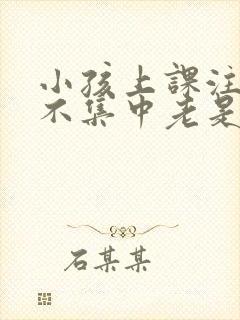 小孩上課注
不集中老是
石某某